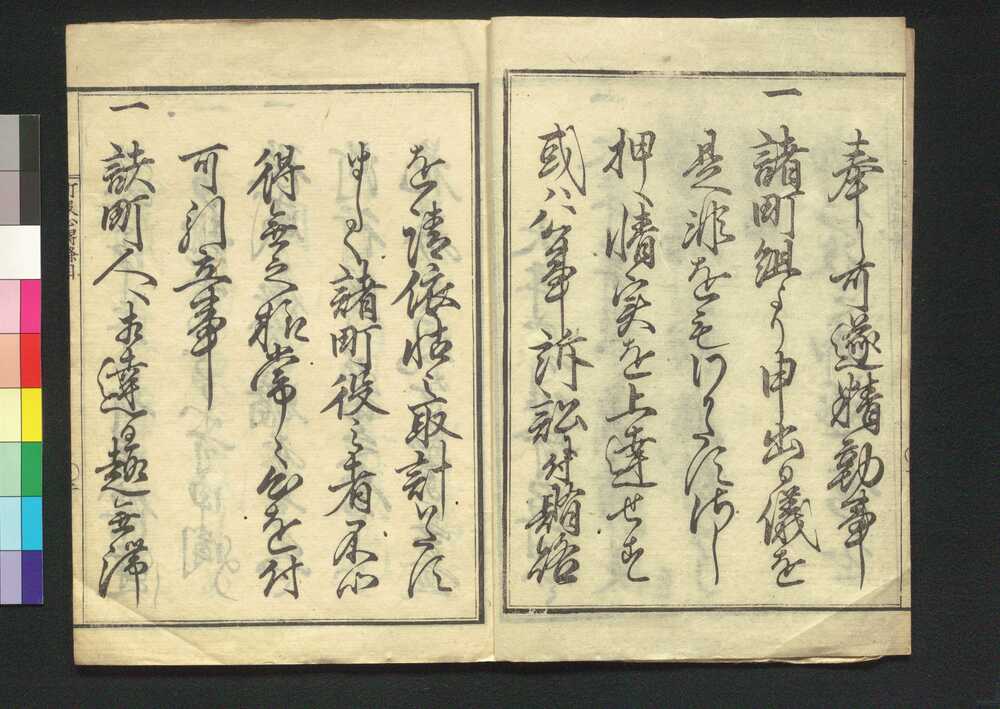 奉し可遂精勤事
一
諸町組より申出る儀を
是非を
押へ情実を上達せす
或ハ公事訴訟付賄賂
を請依怙之取計いたし
諸町役之者不心
得無之様常々心を付
可引立事
一
諸町人へ相達る趣無滞
町役心得条目